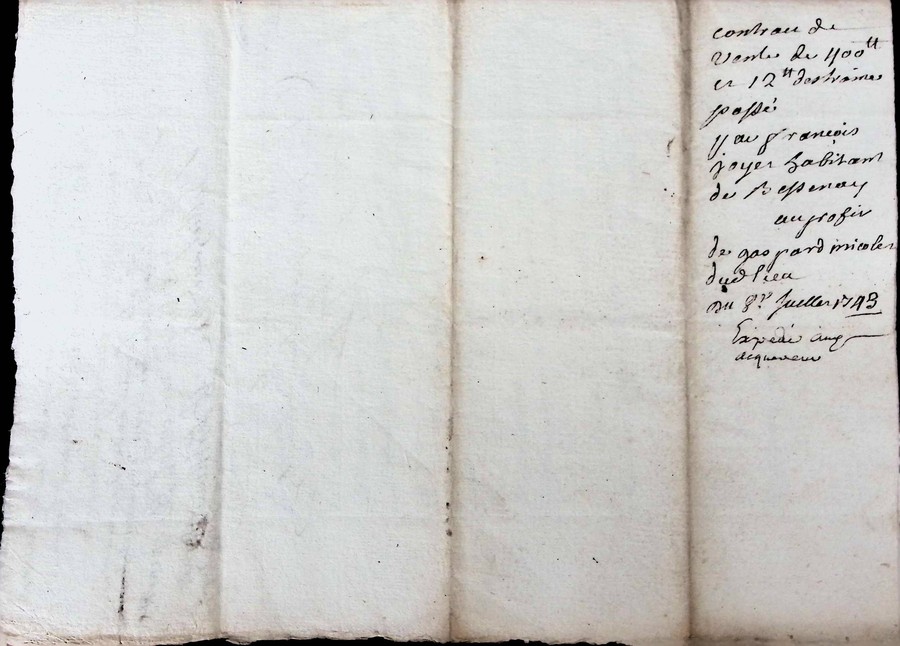 contrac de
vante de 1100ᵗᵗ
et 12ᵗᵗ destraine
passé
par françois
joyet habitant
de Bessenay
au profit
de gaspard nicolet
dud lieu
du juillet 1743
Expedié aux
acquereur